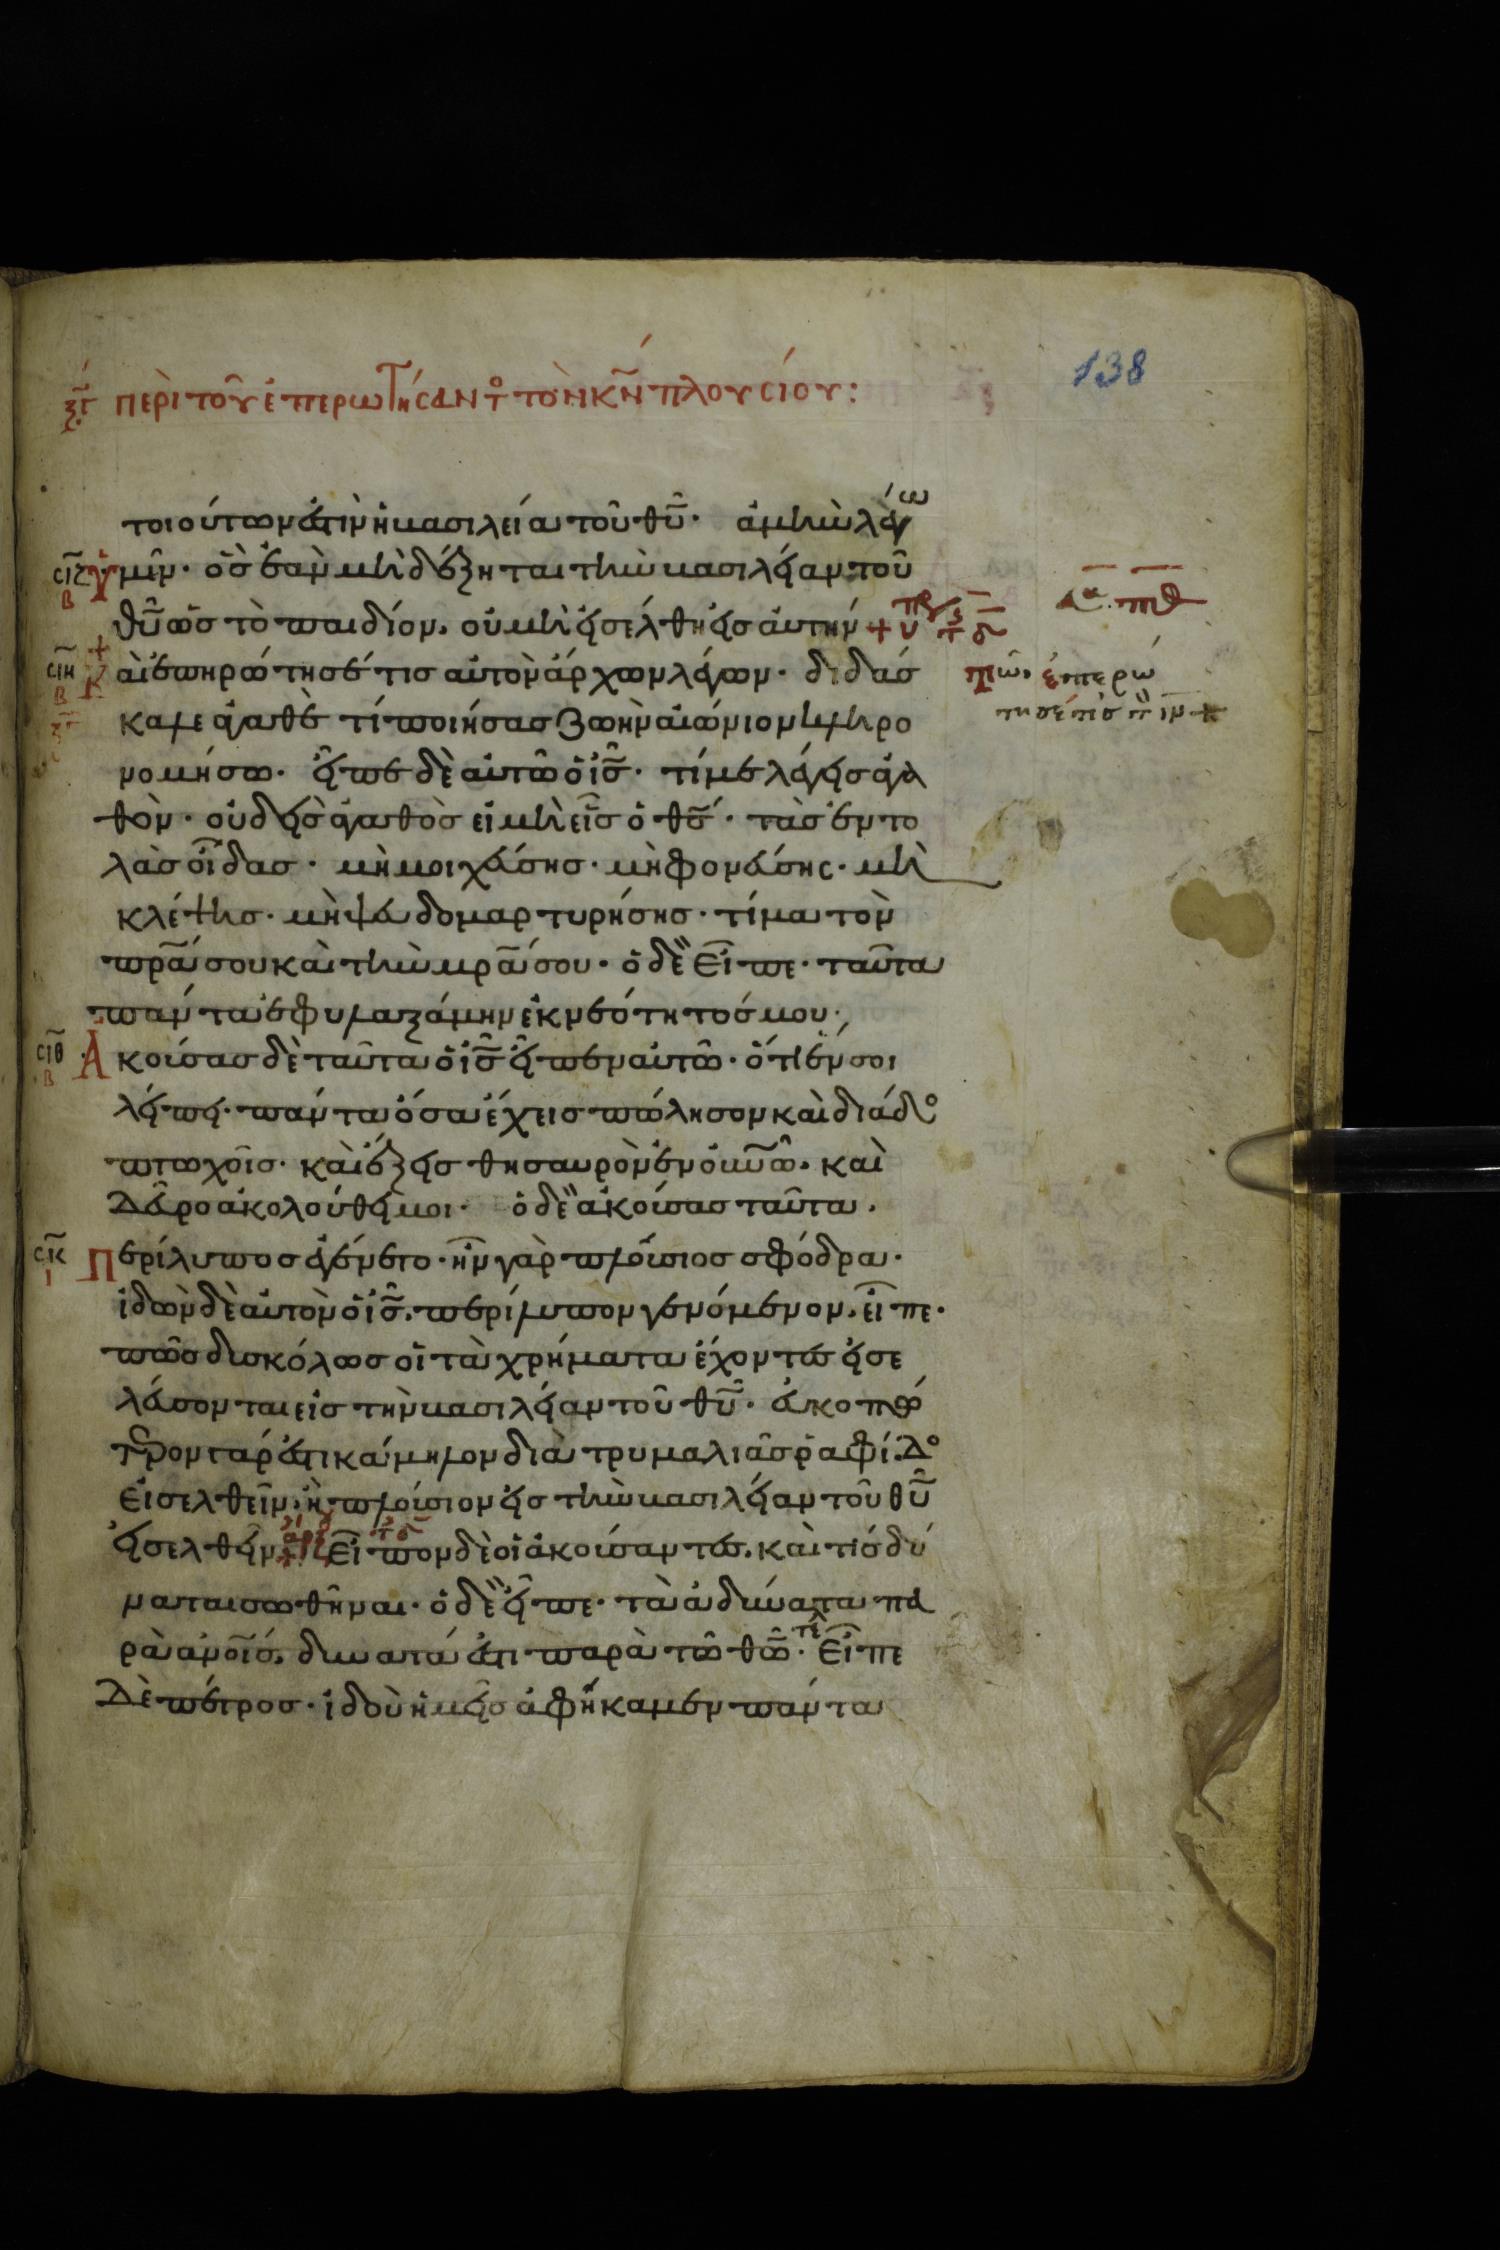 138
ξγ περὶ τοῦ ἐπερωτήσαντο τὸν κν̄ πλουσίου:
τοιούτων ἐστὶν ἡ βασιλεία τοῦ θῡ· ἀμὴν λέγω
σιζ β ὑμῖν· ὃς ἐὰν μὴ δέξηται τὴν βασιλείαν τοῦ
θῡ ὡς τὸ παιδίον, οὐ μὴ εἰσέλθη εἰς αὐτήν +
πθ
σιη β Καὶ ἐπηρώτησέ τις αὐτὸν ἄρχων λέγων· διδάσ
τῶ ἐπερώ
καλε ἀγαθὲ τί ποιήσας ζωὴν αἰώνιον κληρο
τησέ τις
νομήσω· εἶπε δὲ αὐτῶ ὁ ις̄· τί με λέγεις ἀγα
θὸν· οὐδεὶς ἀγαθὸς εἰ μὴ εἷς ὁ θς̄· τὰς ἐντο
λὰς οἶδας· μὴ μοιχεύσης· μὴ φονεύσης· μὴ
κλέψης· μὴ ψευδομαρτυρήσης· τίμα τὸν
πρ̄α σου καὶ τὴν μρ̄α σου· ὁ δὲ εἶπε· ταῦτα
πάντα ἐφυλαξάμην ἐκ νεότητός μου·
σιθ β Ἀκούσας δὲ ταῦτα ὁ ις̄ εἶπεν αὐτῶ· ὅτι ἕν σοι
λείπει· πάντα ὅσα ἔχεις πώλησον καὶ διάδο
πτωχοῖς· καὶ ἕξεις θησαυρὸν ἐν οὐνῶ· καὶ
δεῦρο ἀκολούθει μοι· ὁ δὲ ἀκούσας ταῦτα·
σκ Περίλυπος ἐγένετο· ἦν γὰρ πλούσιος σφόδρα·
ἰδὼν δὲ αὐτὸν ὁ ις̄ περίλυπον γενόμενον, εἶπε·
πῶς δυσκόλως οἱ τὰ χρήματα ἔχοντες εἰσε
λεύσονται εἰς τὴν βασιλείαν τοῦ θῡ· εὐκοπώ
τερον γάρ ἐστι κάμηλον διὰ τρυμαλιᾶς ῥαφίδο
εἰσελθεῖν, ἢ πλούσιον εἰς τὴν βασιλείαν τοῦ θῡ
εἰσελθεῖν Εἶπον δὲ οἱ ἀκούσαντες, καὶ τίς δύ
ναται σωθῆναι· ὁ δὲ εἶπε· τὰ ἀδύνατα πα
ρὰ ἀνοῖς, δυνατά ἐστι παρὰ τῶ θῶ· Εἶπε
δὲ πέτρος· ἰδοὺ ἡμεῖς ἀφήκαμεν πάντα